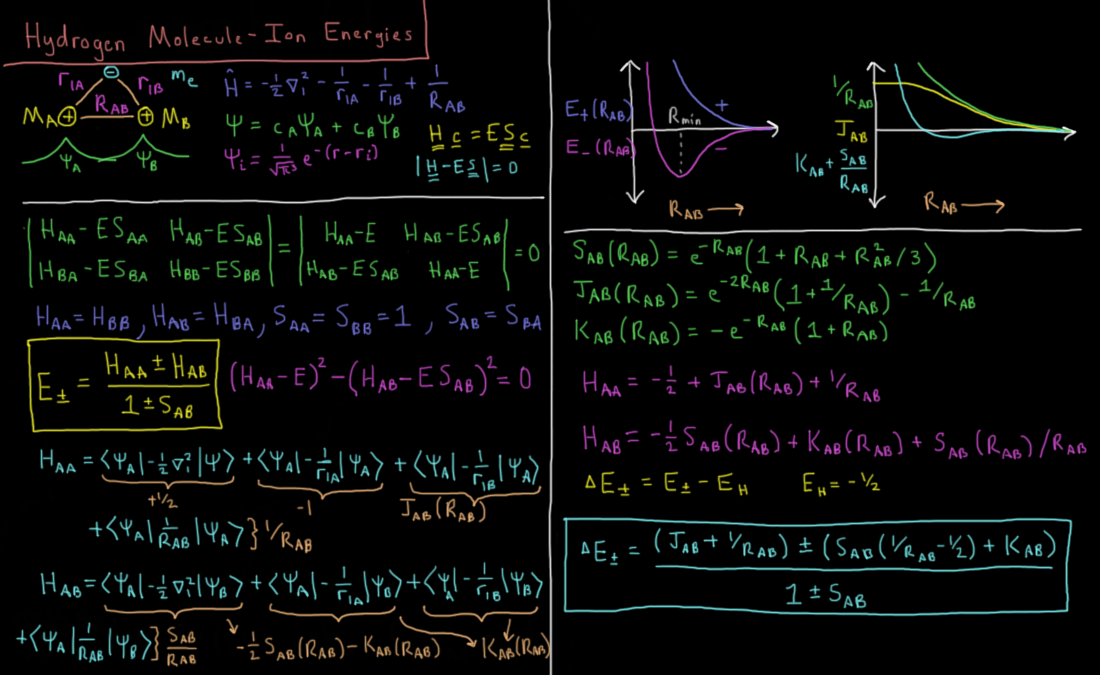 Hydrogen Molecule-Ion Energies
r₁A ⊖ r₁B mₑ
M_A ⊕ R_AB ⊕ M_B
Ψ_A Ψ_B
Ĥ = -½∇₁² - 1/r₁A - 1/r₁B + 1/R_AB
Ψ = c_AΨ_A + c_BΨ_B
Ψᵢ = 1/√π³ e^-(r-rᵢ)
H c = E S c
|H-ES| = 0
|H_AA-ES_AA H_AB-ES_AB| = |H_AA-E H_AB-ES_AB| = 0
|H_BA-ES_BA H_BB-ES_BB| |H_AB-ES_AB H_AA-E|
H_AA = H_BB, H_AB = H_BA, S_AA = S_BB = 1, S_AB = S_BA
E± = (H_AA ± H_AB)/(1 ± S_AB) (H_AA-E)² - (H_AB-ES_AB)² = 0
H_AA = ⟨Ψ_A|-½∇₁²|Ψ⟩ + ⟨Ψ_A|-1/r₁A|Ψ_A⟩ + ⟨Ψ_A|-1/r₁B|Ψ_A⟩
+½ -1 J_AB(R_AB)
+⟨Ψ_A|1/R_AB|Ψ_A⟩} 1/R_AB
H_AB = ⟨Ψ_A|-½∇₁²|Ψ_B⟩ + ⟨Ψ_A|-1/r₁A|Ψ_B⟩ + ⟨Ψ_A|-1/r₁B|Ψ_B⟩
+⟨Ψ_A|1/R_AB|Ψ_B⟩} S_AB/R_AB -½S_AB(R_AB) - K_AB(R_AB) K_AB(R_AB)
E₊(R_AB)
E₋(R_AB)
R_min
+
-
R_AB →
1/R_AB
J_AB
K_AB + S_AB/R_AB
R_AB →
S_AB(R_AB) = e^-R_AB (1 + R_AB + R_AB²/3)
J_AB(R_AB) = e^-2R_AB (1 + 1/R_AB) - 1/R_AB
K_AB(R_AB) = -e^-R_AB (1 + R_AB)
H_AA = -½ + J_AB(R_AB) + 1/R_AB
H_AB = -½ S_AB(R_AB) + K_AB(R_AB) + S_AB(R_AB)/R_AB
ΔE± = E± - E_H E_H = -½
ΔE± = ((J_AB + 1/R_AB) ± (S_AB(1/R_AB - ½) + K_AB))/(1 ± S_AB)